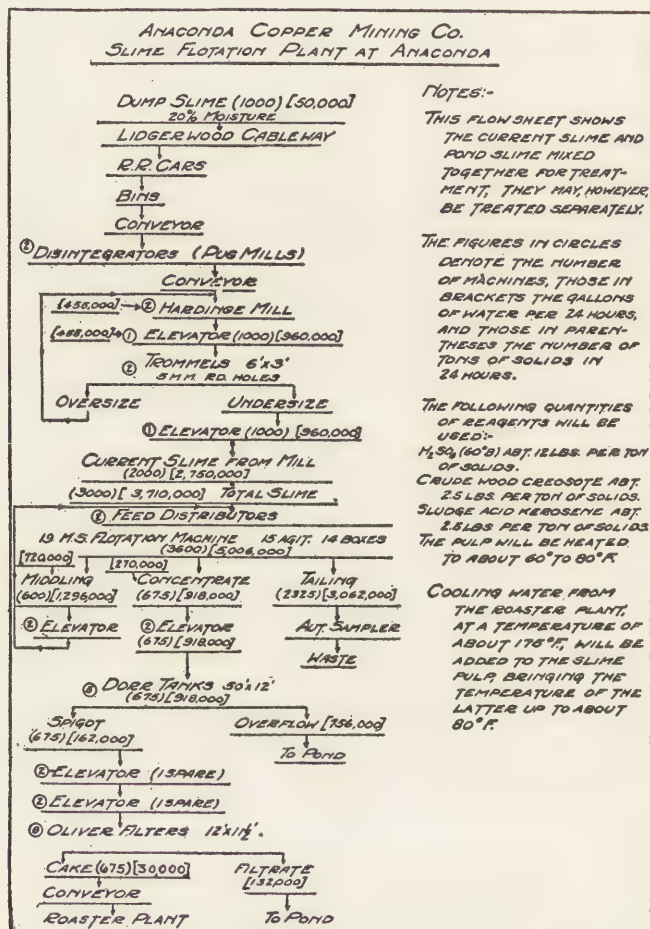 ANACONDA COPPER MINING CO.
SLIME FLOTATION PLANT AT ANACONDA
DUMP SLIME (1000) [50,000]
20% MOISTURE
LIDGERWOOD CABLEWAY
R.R. CARS
BINS
CONVEYOR
② DISINTEGRATORS (PUG MILLS)
CONVEYOR
[455,000] ② HARDINGE MILL
[455,000] ① ELEVATOR (1000) [960,000]
② TROMMELS 6'X3'
5 M.M. RD. HOLES
OVERSIZE UNDERSIZE
① ELEVATOR (1000) [960,000]
CURRENT SLIME FROM MILL
(2000) [2,750,000]
(3000) [3,710,000] TOTAL SLIME
② FEED DISTRIBUTORS
19 M.S. FLOTATION MACHINE 15 AGIT. 14 BOXES
(3600) [5,006,000]
[720,000] [270,000]
MIDDLING CONCENTRATE TAILING
(600) [1,296,000] (675) [918,000] (2325) [3,062,000]
② ELEVATOR ② ELEVATOR AUT. SAMPLER
(675) [918,000]
WASTE
DORR TANKS 50'X12'
(675) [918,000]
SPIGOT OVERFLOW [756,000]
(675) [162,000]
TO POND
② ELEVATOR (1 SPARE)
② ELEVATOR (1 SPARE)
⑧ OLIVER FILTERS 12'X11½'.
CAKE (675) [30,000] FILTRATE
[132,000]
CONVEYOR
ROASTER PLANT TO POND
NOTES:-
THIS FLOW SHEET SHOWS
THE CURRENT SLIME AND
POND SLIME MIXED
TOGETHER FOR TREAT-
MENT, THEY MAY, HOWEVER,
BE TREATED SEPARATELY.
THE FIGURES IN CIRCLES
DENOTE THE NUMBER
OF MACHINES, THOSE IN
BRACKETS THE GALLONS
OF WATER PER 24 HOURS,
AND THOSE IN PAREN-
THESES THE NUMBER OF
TONS OF SOLIDS IN
24 HOURS.
THE FOLLOWING QUANTITIES
OF REAGENTS WILL BE
USED:-
H₂SO₄ (60°B) ABT. 12 LBS. PER TON
OF SOLIDS.
CRUDE WOOD CREOSOTE ABT.
2.5 LBS. PER TON OF SOLIDS.
SLUDGE ACID KEROSENE ABT.
2.5 LBS PER TON OF SOLIDS.
THE PULP WILL BE HEATED
TO ABOUT 60° TO 80°F.
COOLING WATER FROM
THE ROASTER PLANT,
AT A TEMPERATURE OF
ABOUT 175°F, WILL BE
ADDED TO THE SLIME
PULP, BRINGING THE
TEMPERATURE OF THE
LATTER UP TO ABOUT
80°F.